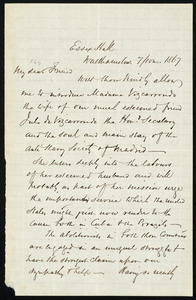 Essex Hall
Walthamstow 7/mo. 1867
My dear Friend
Wilt thou kindly allow
me to introduce Madame Vizcarrondo
the wife of our much esteemed friend
Julio de Vizcarrondo the Hon. Secretary
and the soul and main stay of the
Anti Slavery Society of Madrid.
She enters deeply into the labours
of her esteemed husband and will
probably as part of her mission urge
the important service which the United
States might give now render to the
cause both in Cuba & in Brazil.
The abolitionists in both these Countries
are engaged in an unequal struggle &
have the strongest claims upon our
sympathy & help.